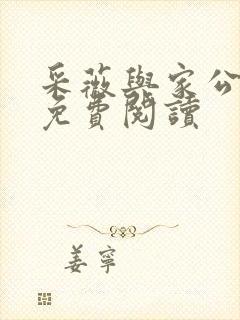 采薇與家公
免費閱讀
姜寧